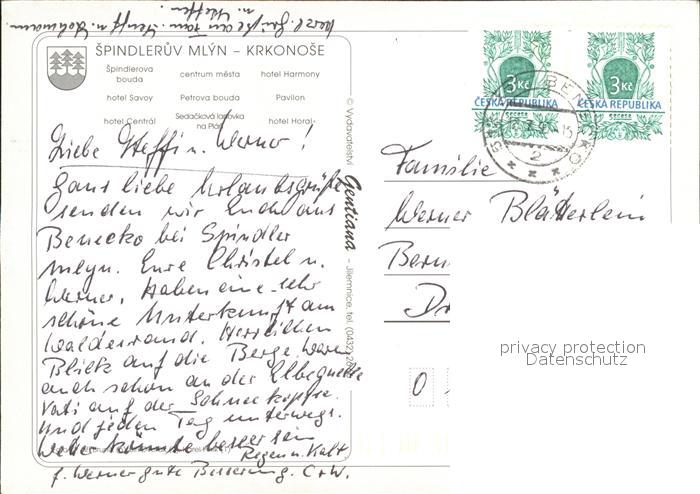 Herzl. Grüße an Fam. Senff u. Lohmann.
u. Steffen.
ŠPINDLERŮV MLÝN – KRKONOŠE
Špindlerova bouda
centrum města
hotel Harmony
hotel Savoy
Petrova bouda
Pavilon
hotel Centrál
Sedačková lanovka na Pláň
hotel Horal
Liebe Steffi u. Werner!
Ganz liebe Urlaubsgrüße
senden wir Euch aus
Benecko bei Spindler
mlyn. Eure Christel u.
Werner. Haben eine sehr
schöne Unterkunft am
Waldesrand. Herrlichen
Blick auf die Berge. Waren
auch schon an der Elbquelle
Vati auf der Schneekoppe.
Und jeden Tag unterwegs.
Wetter könnte besser sein
Regen u. Kalt.
f. Werner gute Besserung. C+W.
© Vydavatelství Gentiana – Jilemnice, tel. (0432)
3 Kč
ČESKÁ REPUBLIKA
secese
3 Kč
ČESKÁ REPUBLIKA
secese
BENECKO
2
Familie
Werner Blätterlein
Bern
Dr
0
privacy protection
Datenschutz